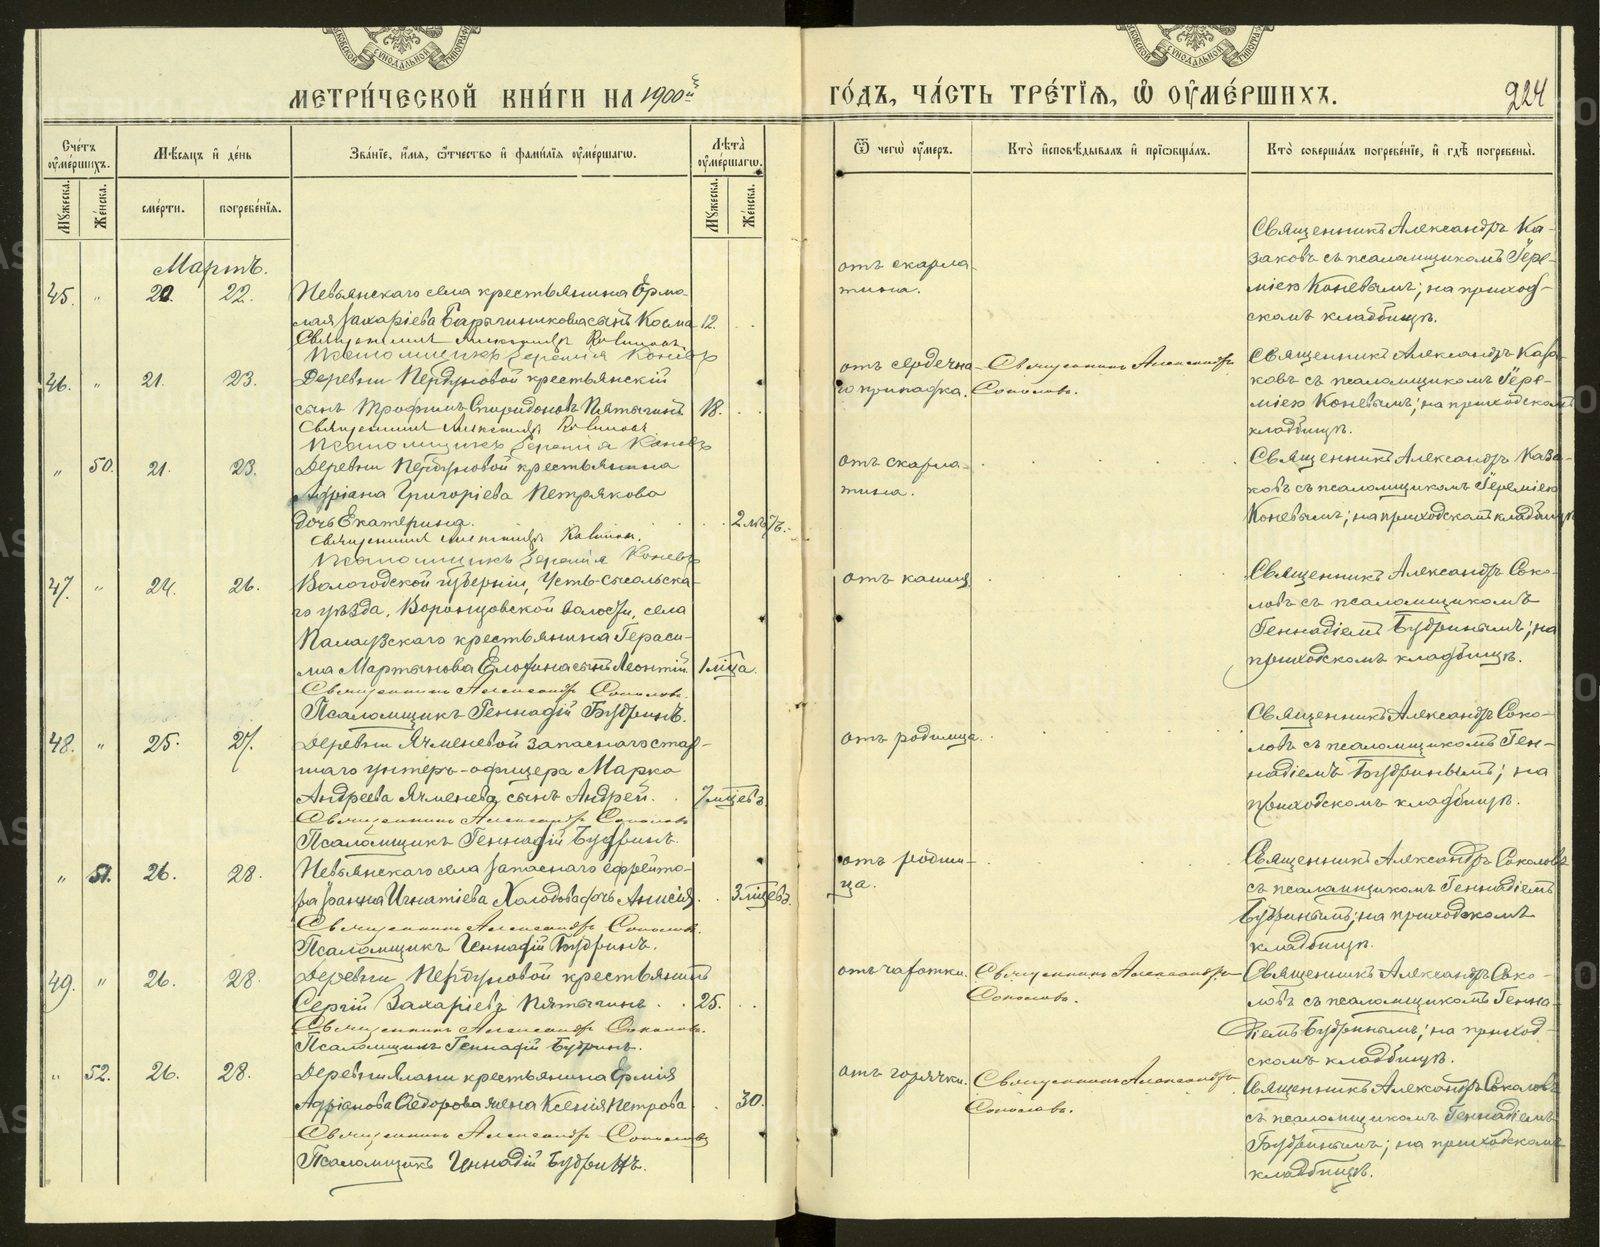 МЕТРИ́ЧЕСКОЙ КНИ́ГИ НА 1900й
ГО́ДЪ, ЧА́СТЬ ТРЕ́ТІѦ, Ѡ ОУМЕ́РШИХЪ.
224
Сче́тъ оумѐршихъ.
Мꙋжеска.
Же́нска.
Мѣсяцъ и де́нь
сме́рти.
погребе́нїя.
Зва́нїе, и́мя, ѻ́тчество и фами́лїя оуме́ршагѡ.
Лѣ́та оуме́ршагѡ.
Мꙋжеска.
Же́нска.
Ѿ чегѡ̀ оу́меръ.
Кто̀ исповѣ́дывалъ и прїѡбща́лъ.
Кто̀ соверша́лъ погребе́нїе, и гдѣ̀ погребены̀.
Мартъ.
45. " 20. 22.
Невьянскаго села крестьянина Ермо-
лая Захаріева сынъ Косма 12.
Священникъ Александръ Казаковъ
Псаломщикъ Іеремія Коневъ
отъ скарла-
тина.
Священникъ Александръ Ка-
заковъ съ псаломщикомъ Іере-
міею Коневымъ; на приход-
скомъ кладбищѣ.
46. " 21. 23.
Деревни Пердуновой крестьянскій
сынъ Трофимъ Спиридоновъ Пятыгинъ 18.
Священникъ Александръ Казаковъ
Псаломщикъ Іеремія Коневъ
отъ сердечна-
го припадка.
Священникъ Александръ
Соколовъ.
Священникъ Александръ Каза-
ковъ съ псаломщикомъ Іере-
міею Коневымъ; на приходскомъ
кладбищѣ.
" 50. 21. 23.
Деревни Пердуновой крестьянина
Адріана Григоріева Петрякова
дочь Екатерина. 2 лѣтъ.
Священникъ Александръ Казаковъ.
Псаломщикъ Іеремія Коневъ
отъ скарла-
тина.
Священникъ Александръ Каза-
ковъ съ псаломщикомъ Іереміею
Коневымъ; на приходскомъ кладбищѣ
47. " 24. 26.
Вологодской губерніи, Усть-Сысольска-
го уѣзда, Воронцовской волости, села
Палаузскаго крестьянина Гераси-
ма Мартынова сынъ Леонтій. 1 мца.
Священникъ Александръ Соколовъ.
Псаломщикъ Геннадій Будринъ.
отъ кашля
Священникъ Александръ Соко-
ловъ съ псаломщикомъ
Геннадіемъ Будринымъ; на
приходскомъ кладбищѣ.
48. " 25. 27.
Деревни Ячменевой запаснаго стар-
шаго унтеръ-офицера Марка
Андреева Ячменева сынъ Андрей. 7 мцевъ
Священникъ Александръ Соколовъ
Псаломщикъ Геннадій Будринъ.
отъ родимца.
Священникъ Александръ Соко-
ловъ съ псаломщикомъ Ген-
надіемъ Будринымъ; на
приходскомъ кладбищѣ.
" 51. 26. 28.
Невьянскаго села запаснаго ефрейто-
ра Іоанна Игнатіева Холодова дочь Анисія. 3 мцевъ.
Священникъ Александръ Соколовъ.
Псаломщикъ Геннадій Будринъ.
отъ родим-
ца.
Священникъ Александръ Соколовъ
съ псаломщикомъ Геннадіемъ
Будринымъ; на приходскомъ
кладбищѣ.
49. " 26. 28.
Деревни Пердуновой крестьянинъ
Сергій Захаріевъ Пятыгинъ 25.
Священникъ Александръ Соколовъ.
Псаломщикъ Геннадій Будринъ.
отъ чахотки.
Священникъ Александръ
Соколовъ.
Священникъ Александръ Соко-
ловъ съ псаломщикомъ Генна-
діемъ Будринымъ; на приход-
скомъ кладбищѣ.
" 52. 26. 28.
Деревни Ялани крестьянина Ермія
Адріанова Ѳедорова жена Ксенія Петрова 30.
Священникъ Александръ Соколовъ
Псаломщикъ Геннадій Будринъ.
отъ горячки.
Священникъ Александръ
Соколовъ.
Священникъ Александръ Соколовъ
съ псаломщикомъ Геннадіемъ
Будринымъ; на приходскомъ
кладбищѣ.